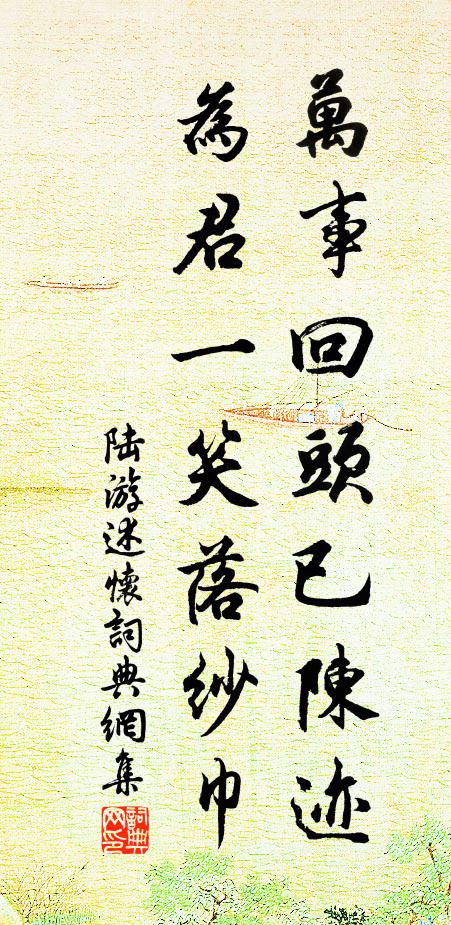 萬事回頭已陳迹
為君一笑落紗巾
陆游述懷詞典網集
詞典网印